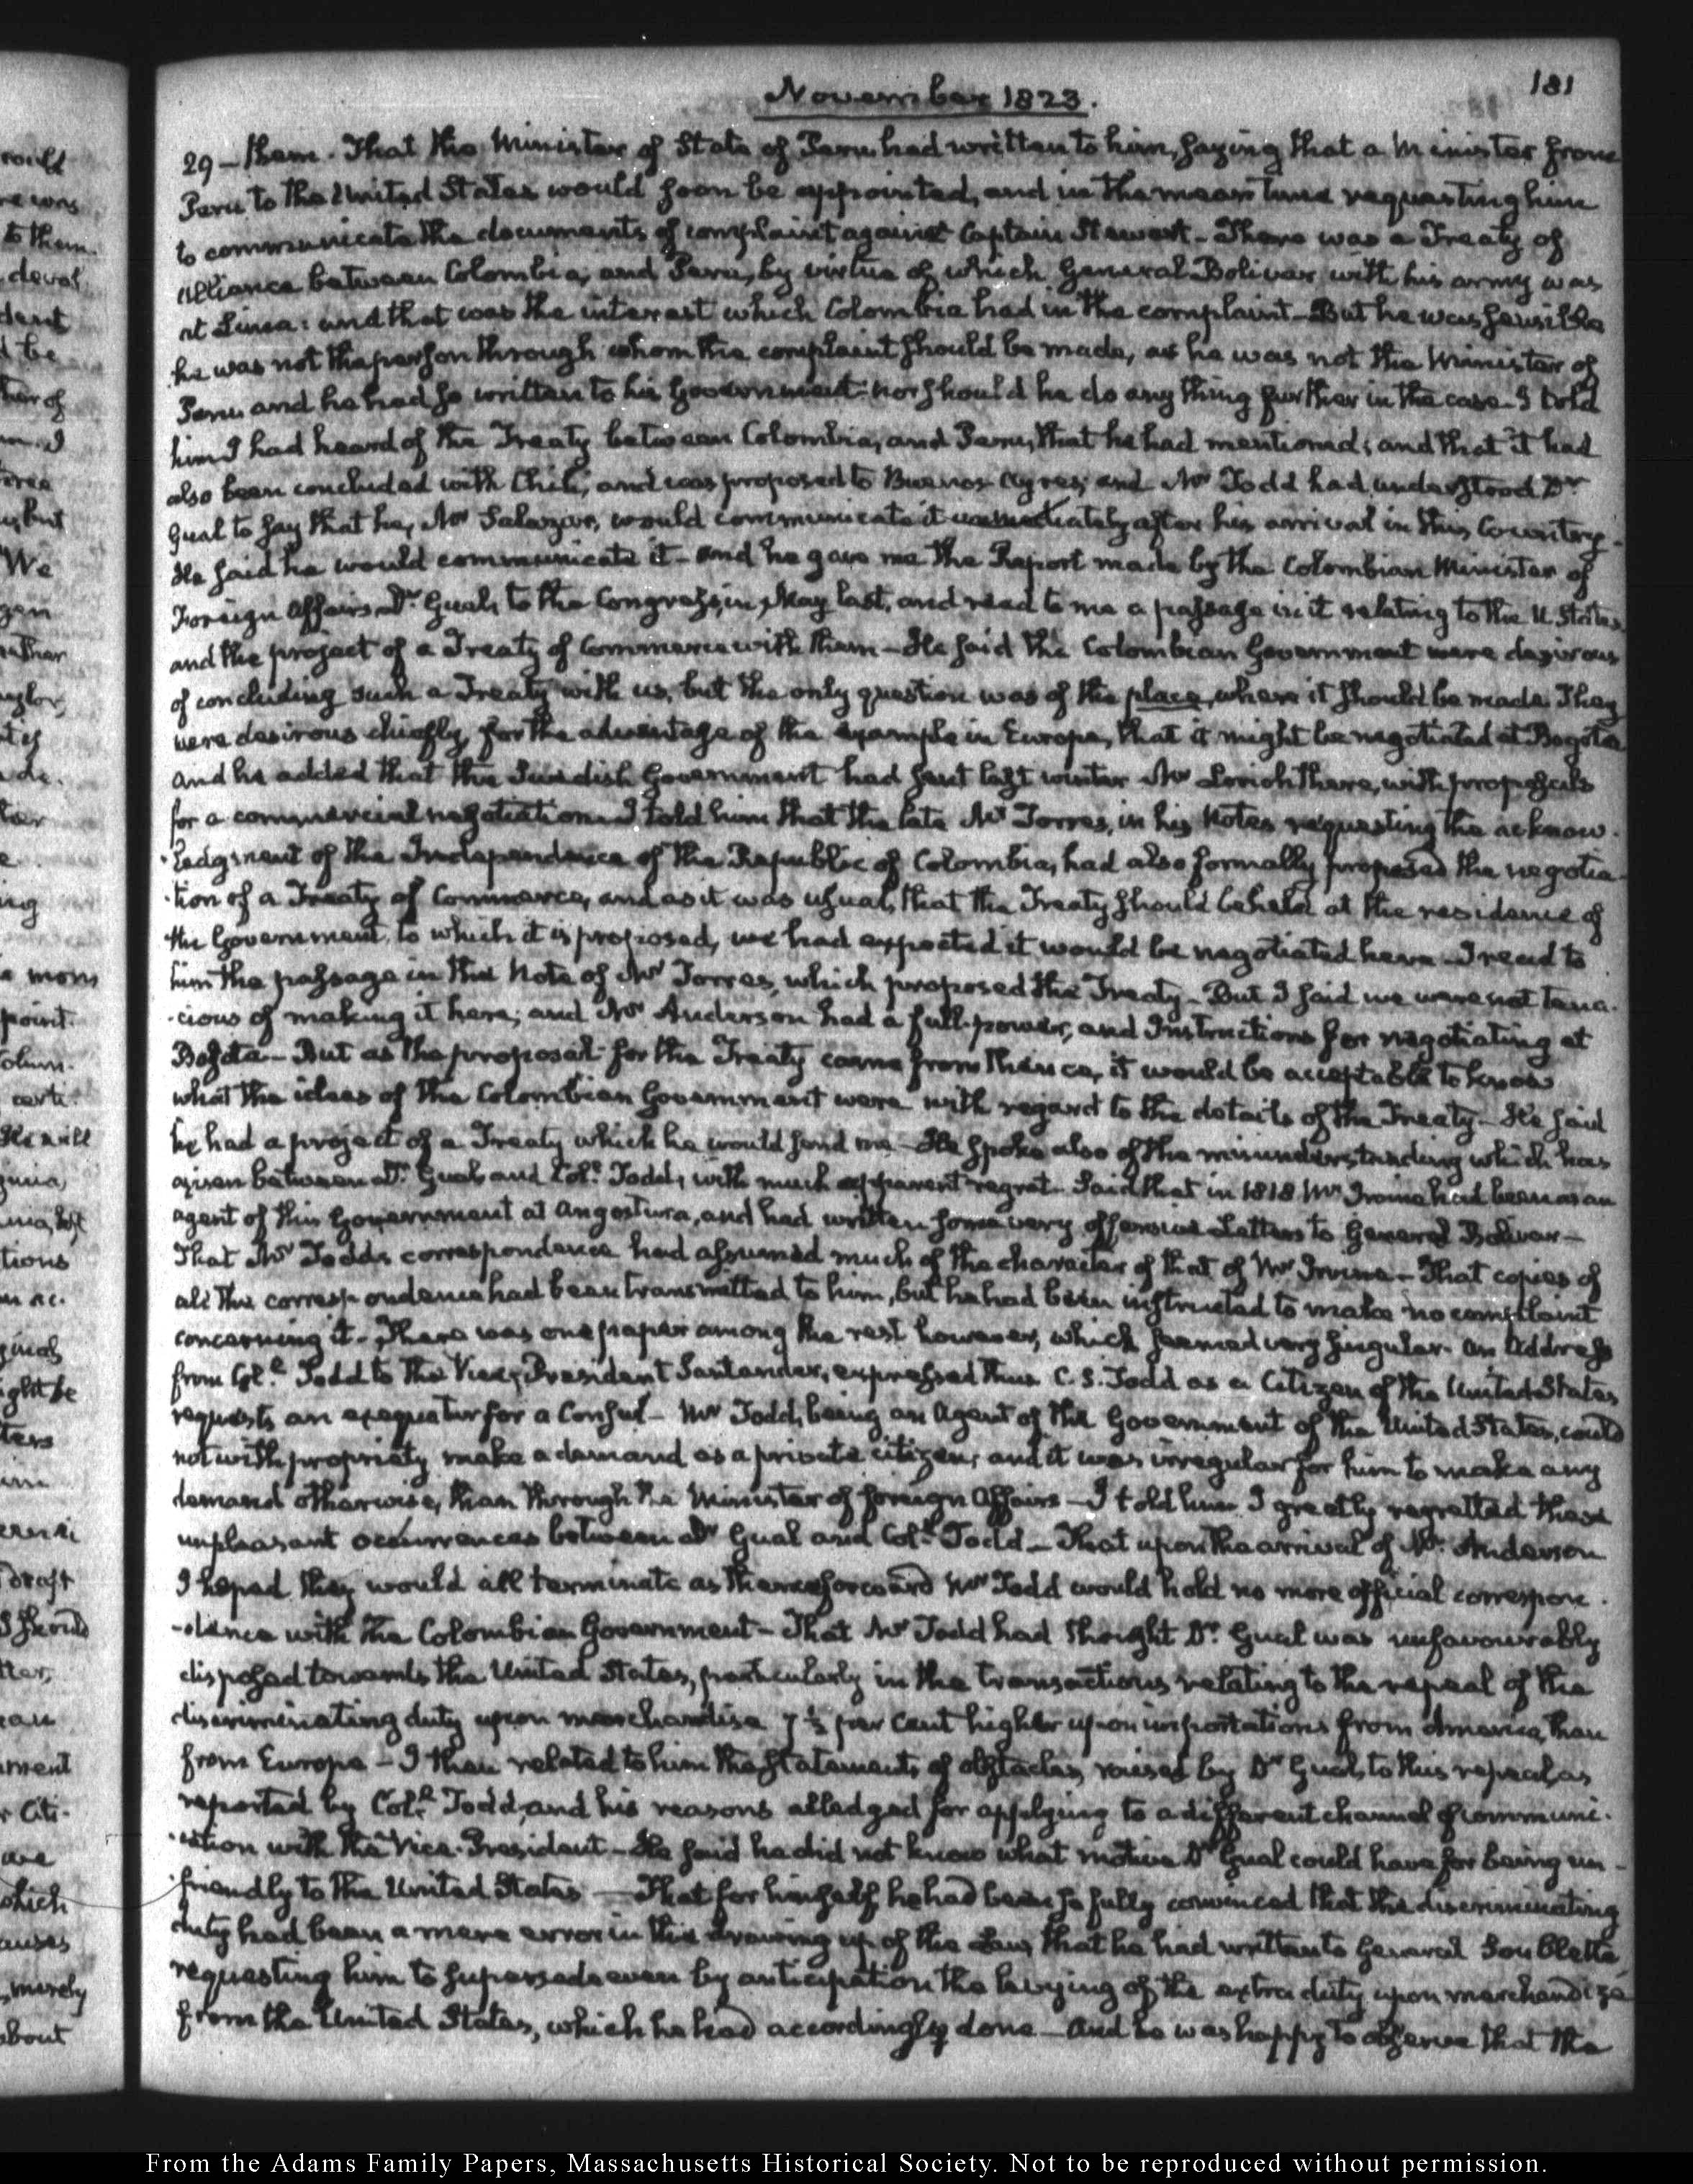 November 1823.
181
29 – them. That the Minister of State of Peru had written to him, saying that a Minister from
Peru to the United States would soon be appointed, and in the mean time requesting him
to communicate the documents of complaint against Captain Stewart – There was a Treaty of
Alliance between Colombia, and Peru, by virtue of which General Bolivar with his army was
at Lima: and that was the interest which Colombia had in the complaint – But he was sensible
he was not the person through whom the complaint should be made, as he was not the Minister of
Peru and he had so written to his Government – nor should he do any thing further in the case – I told
him I had heard of the Treaty between Colombia, and Peru, that he had mentioned; and that it had
also been concluded with Chili, and was proposed to Buenos-Ayres; and Mr Todd had understood Dr
Gual to say that he, Mr Salazar, would communicate it immediately after his arrival in this Country –
He said he would communicate it – and he gave me the Report made by the Colombian Minister of
Foreign Affairs Dr Gual, to the Congress, in May last, and read to me a passage in it relating to the U. States,
and the project of a Treaty of Commerce with them – He said the Colombian Government were desirous
of concluding such a Treaty with us, but the only question was of the place, where it should be made. They
were desirous chiefly, for the advantage of the example in Europe, that it might be negotiated at Bogota
And he added that the Swedish Government had sent last winter Mr Lorich there, with proposals
for a commercial negotiation – I told him that the late Mr Torres, in his Notes requesting the acknow-
-ledgment of the Independence of the Republic of Colombia, had also formally proposed the negotia-
-tion of a Treaty of Commerce, and as it was usual, that the Treaty should be held at the residence of
the Government, to which it is proposed, we had expected it would be negotiated here – I read to
him the passage in the Note of Mr Torres, which proposed the Treaty – But I said we were not tena-
-cious of making it here; and Mr Anderson had a full-power, and Instructions for negotiating at
Bogota – But as the proposal for the Treaty came from thence, it would be acceptable to know
what the ideas of the Colombian Government were with regard to the details of the Treaty – He said
he had a project of a Treaty which he would send me – He spoke also of the misunderstanding which has
arisen between Dr Gual and Coll Todd, with much apparent regret – Said that in 1818 Mr Irvine had been as an
agent of this Government at Angostura, and had written some very offensive Letters to General Bolivar –
That Mr Todds correspondence had assumed much of the character of that of Mr Irvine – That copies of
all the correspondence had been transmitted to him, but he had been instructed to make no complaint
concerning it – There was one paper among the rest however, which seemed very singular. An Address
from Coll Todd to the Vice-President Santander, expressed thus C. S. Todd as a Citizen of the United States,
requests an exequatur for a Consul – Mr Todd, being an Agent of the Government of the United States, could
not with propriety make a demand as a private citizen; and it was irregular for him to make any
demand otherwise, than through the Minister of foreign Affairs – I told him I greatly regretted these
unpleasant occurrences between Dr Gual and Coll Todd – That upon the arrival of Mr Anderson
I hoped they would all terminate as thenceforward Mr Todd would hold no more official correspon-
-dence with the Colombian Government – That Mr Todd had thought Dr Gual was unfavourably
disposed towards the United States, particularly in the transactions relating to the repeal of the
discriminating duty upon merchandise 7 ½ per cent higher upon importations from America, than
from Europe – I then related to him the statements of obstacles raised by Dr Gual, to this repeal as
reported by Coll Todd, and his reasons alledged for applying to a different channel of communi-
-cation with the Vice-President – He said he did not know what motive Dr Gual could have for being un-
-friendly to the United States – That for himself, he had been so fully convinced that the discriminating
duty had been a mere error in the drawing up of the Law, that he had written to General Soublette,
requesting him to supersede even by anticipation the levying of the extra duty upon merchandize
from the United States, which he had accordingly done – And he was happy to observe that the
From the Adams Family Papers, Massachusetts Historical Society. Not to be reproduced without permission.